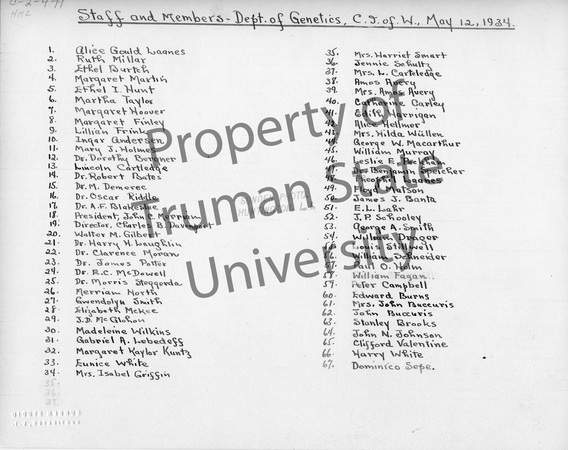 Staff and Members - Dept. of Genetics, C. I. of W., May 12, 1934.
1. Alice Gould Laanes
2. Ruth Millar
3. Ethel Burtch
4. Margaret Martin
5. Ethel I. Hunt
6. Martha Taylor
7. Margaret Hoover
8. Margaret Finley
9. Lillian Frink
10. Inger Andersen
11. Mary J. Holmes
12. Dr. Dorothy Bergner
13. Lincoln Cartledge
14. Dr. Robert Bates
15. Dr. M. Demerec
16. Dr. Oscar Riddle
17. Dr. A.F. Blakeslee
18. President, John C. Merriam
19. Director, Charles B. Davenport
20. Walter M. Gilbert
21. Dr. Harry H. Laughlin
22. Dr. Clarence Moran
23. Dr. James Potter
24. Dr. E.C. McDowell
25. Dr. Morris Steggerda
26. Merriam North
27. Gwendolyn Smith
28. Elizabeth McKee
29. J.D. McGlohon
30. Madeleine Wilkins
31. Gabriel A. Lebedeff
32. Margaret Kaylor Kuntz
33. Eunice White
34. Mrs. Isabel Griffin
35.
36.
37.
35. Mrs. Harriet Smart
36. Jennie Schultz
37. Mrs. L. Cartledge
38. Amos Avery
39. Mrs. Amos Avery
40. Catharine Carley
41. Edith Harrigan
42. Alice Hellmer
43. Mrs. Hilda Wüllen
44. George W. Macarthur
45. William Murray
46. Leslie E.
47. Benjamin
48. Theophil Laanes
49. Floyd Matson
50. James J. Banta
51. E.L. Lahr
52. J.P. Schooley
53. George A. Smith
54. William Drager
55. Louis Stillwell
56. William Schneider
57. Paul O. Holm
58. William Fagan
59. Peter Campbell
60. Edward Burns
61. Mrs. John Buccuris
62. John Buccuris
63. Stanley Brooks
64. John N. Johnson
65. Clifford Valentine
66. Harry White
67. Dominico Sepe.
Property of
Truman State
University